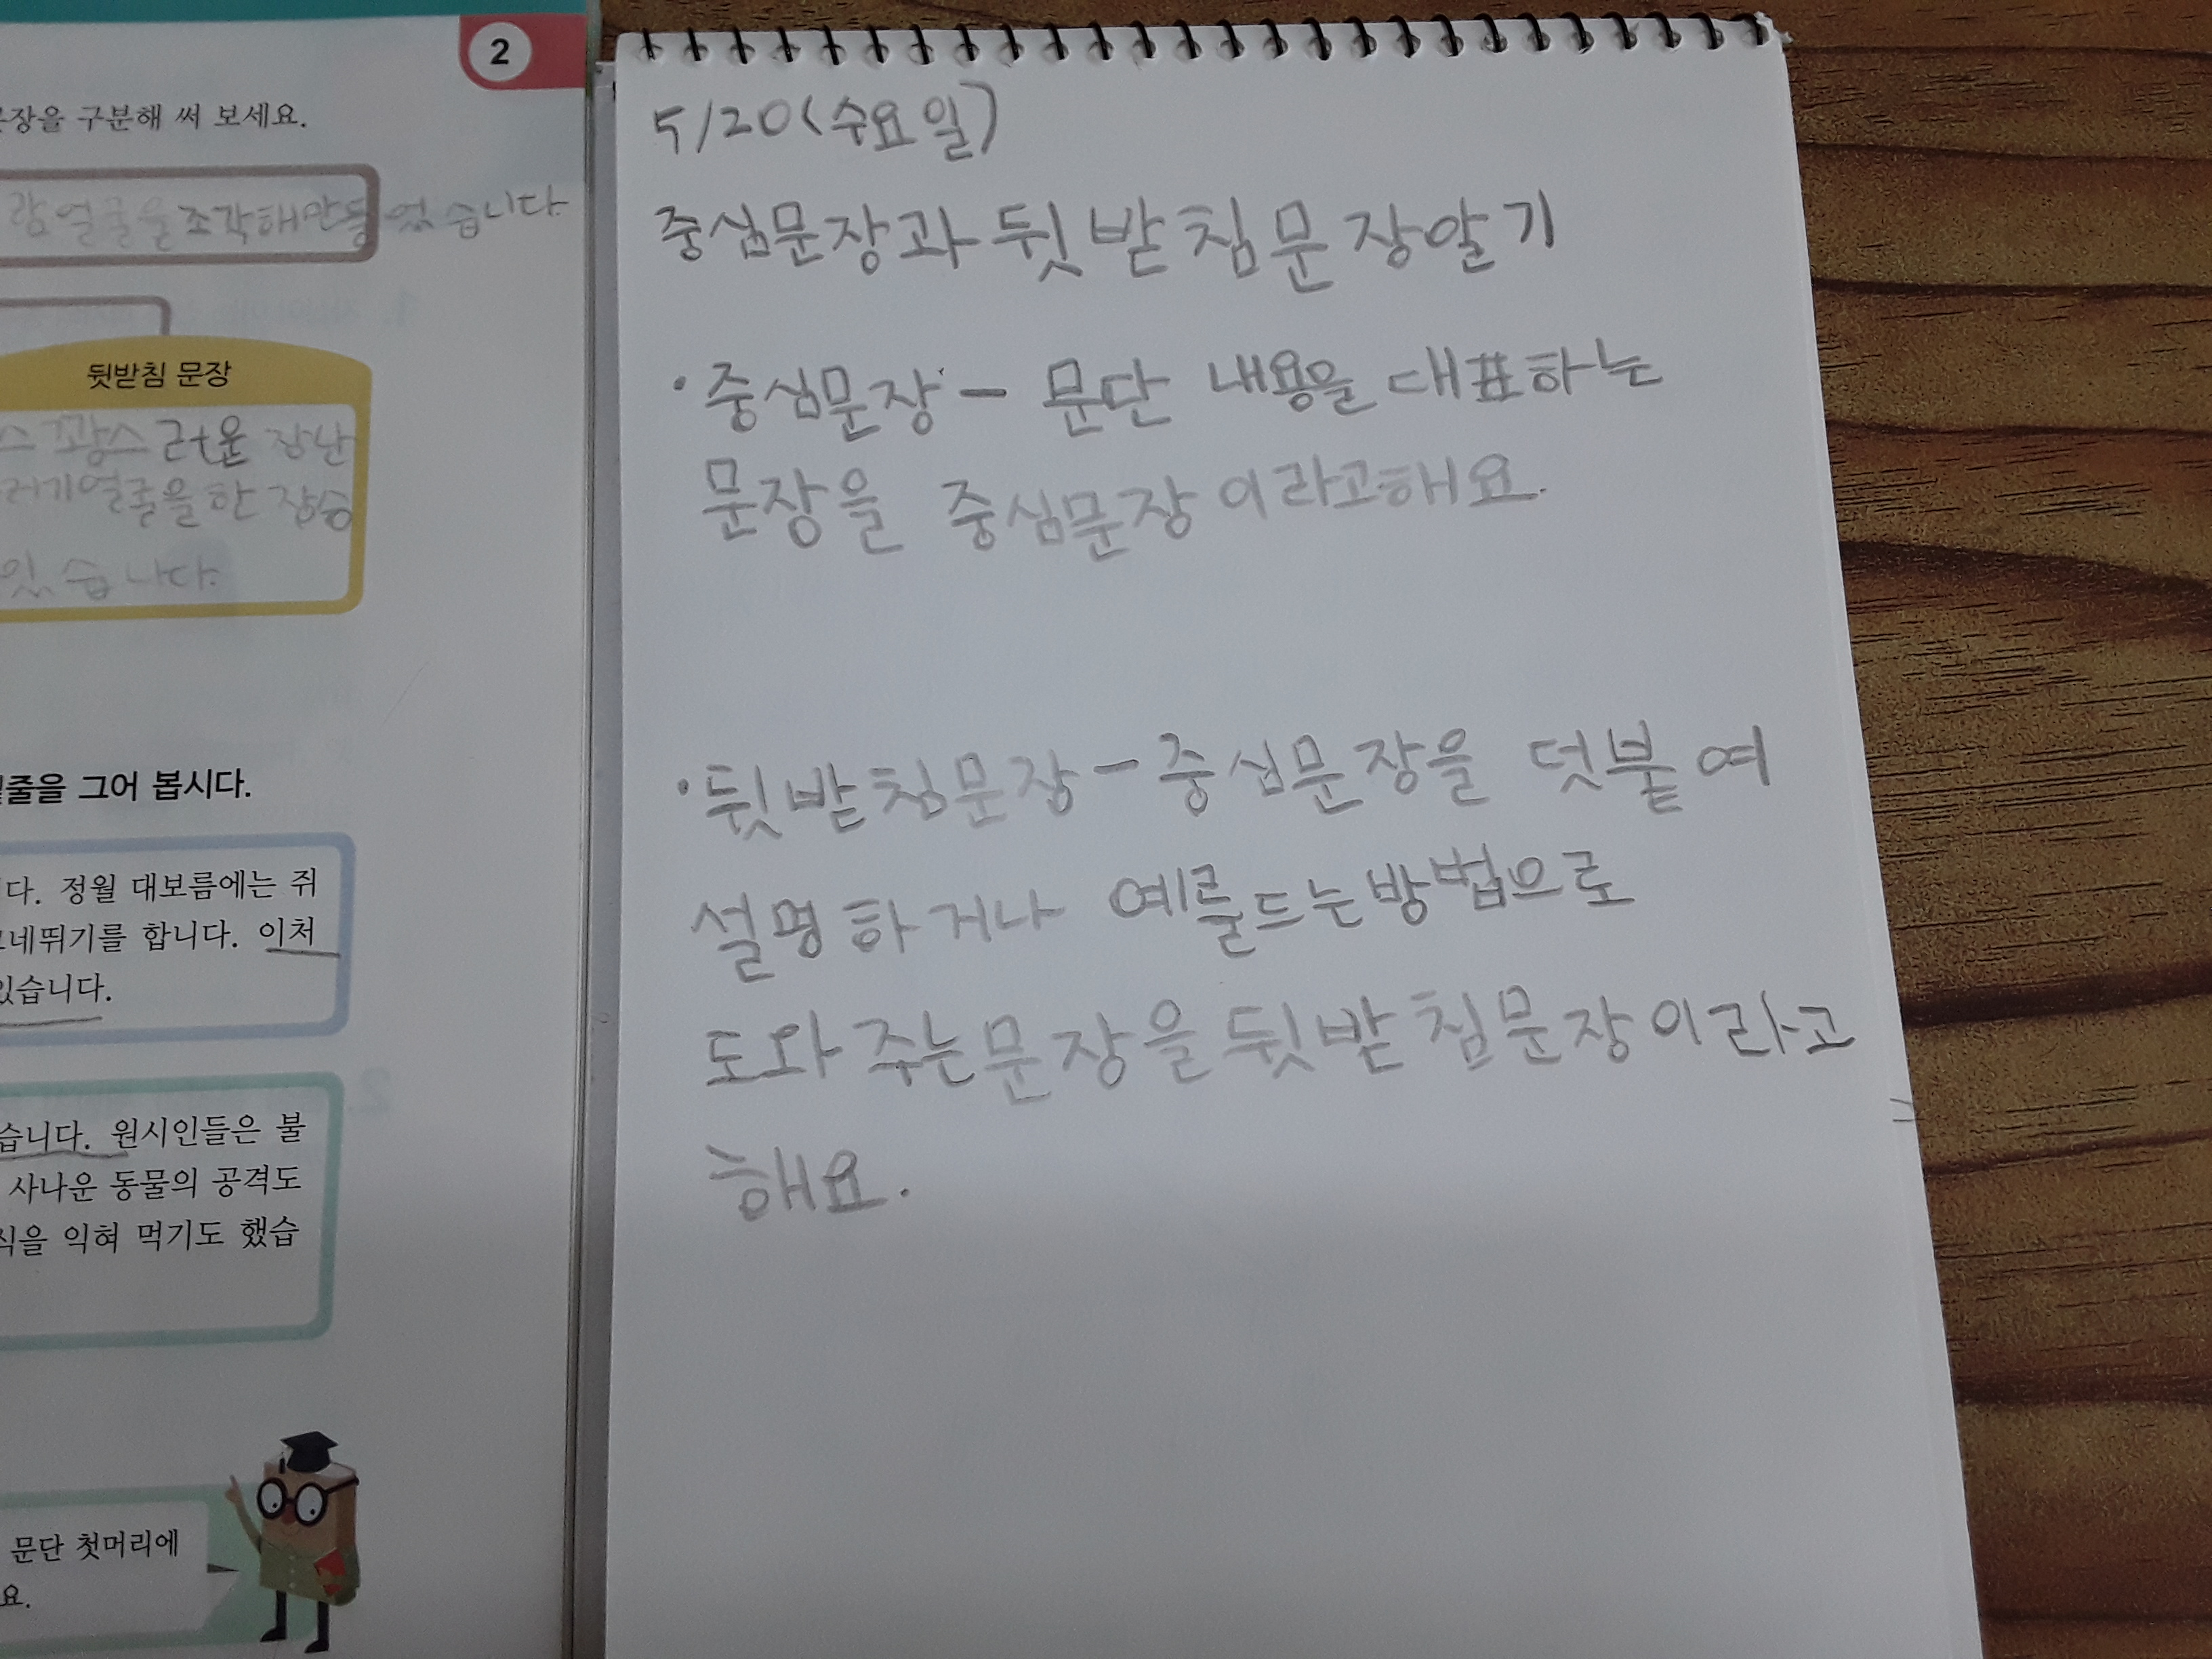 2
문장을 구분해 써 보세요.
람얼굴을조각해만들었습니다.
뒷받침 문장
스꽝스러운 장난
러기얼굴을한 장승
있습니다.
밑줄을 그어 봅시다.
다. 정월 대보름에는 쥐
그네뛰기를 합니다. 이처
있습니다.
습니다. 원시인들은 불
사나운 동물의 공격도
식을 익혀 먹기도 했습
문단 첫머리에
요.
5/20(수요일)
중심문장과 뒷받침문장알기
·중심문장 - 문단 내용을 대표하는
문장을 중심문장이라고해요.
·뒷받침문장 - 중심문장을 덧붙여
설명하거나 예를드는방법으로
도와주는문장을 뒷받침문장이라고
해요.